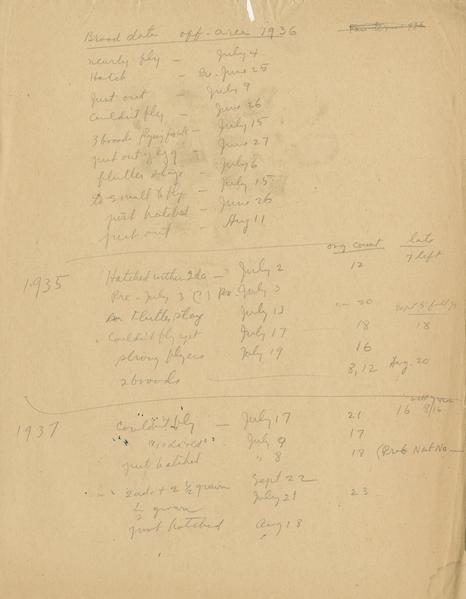 Brood data off-area 1936
nearly fly - July 4
Hatch - June 25
Just out - July 9
Couldn't fly - June 26
3 broods flying - July 15
just out of egg - June 27
flutter stage - July 6
to small to fly - July 15
just hatched - June 26
just out - Aug 11
org count late
1935 Hatched within 2da - July 2 12 7 left
Pre-July 3 (?) July 3
Flutter stage July 13 20
Couldn't fly yet July 17 18 18
strong flyers July 19 16
2 broods 8, 12 Aug. 20
1937 Couldn't fly - July 17 21 16 8/16
July 9 17
just hatched " 8 18 (Prob Nest No -
2 ad + 2 ½ grown Sept 22
½ grown July 21 23
just hatched Aug 18